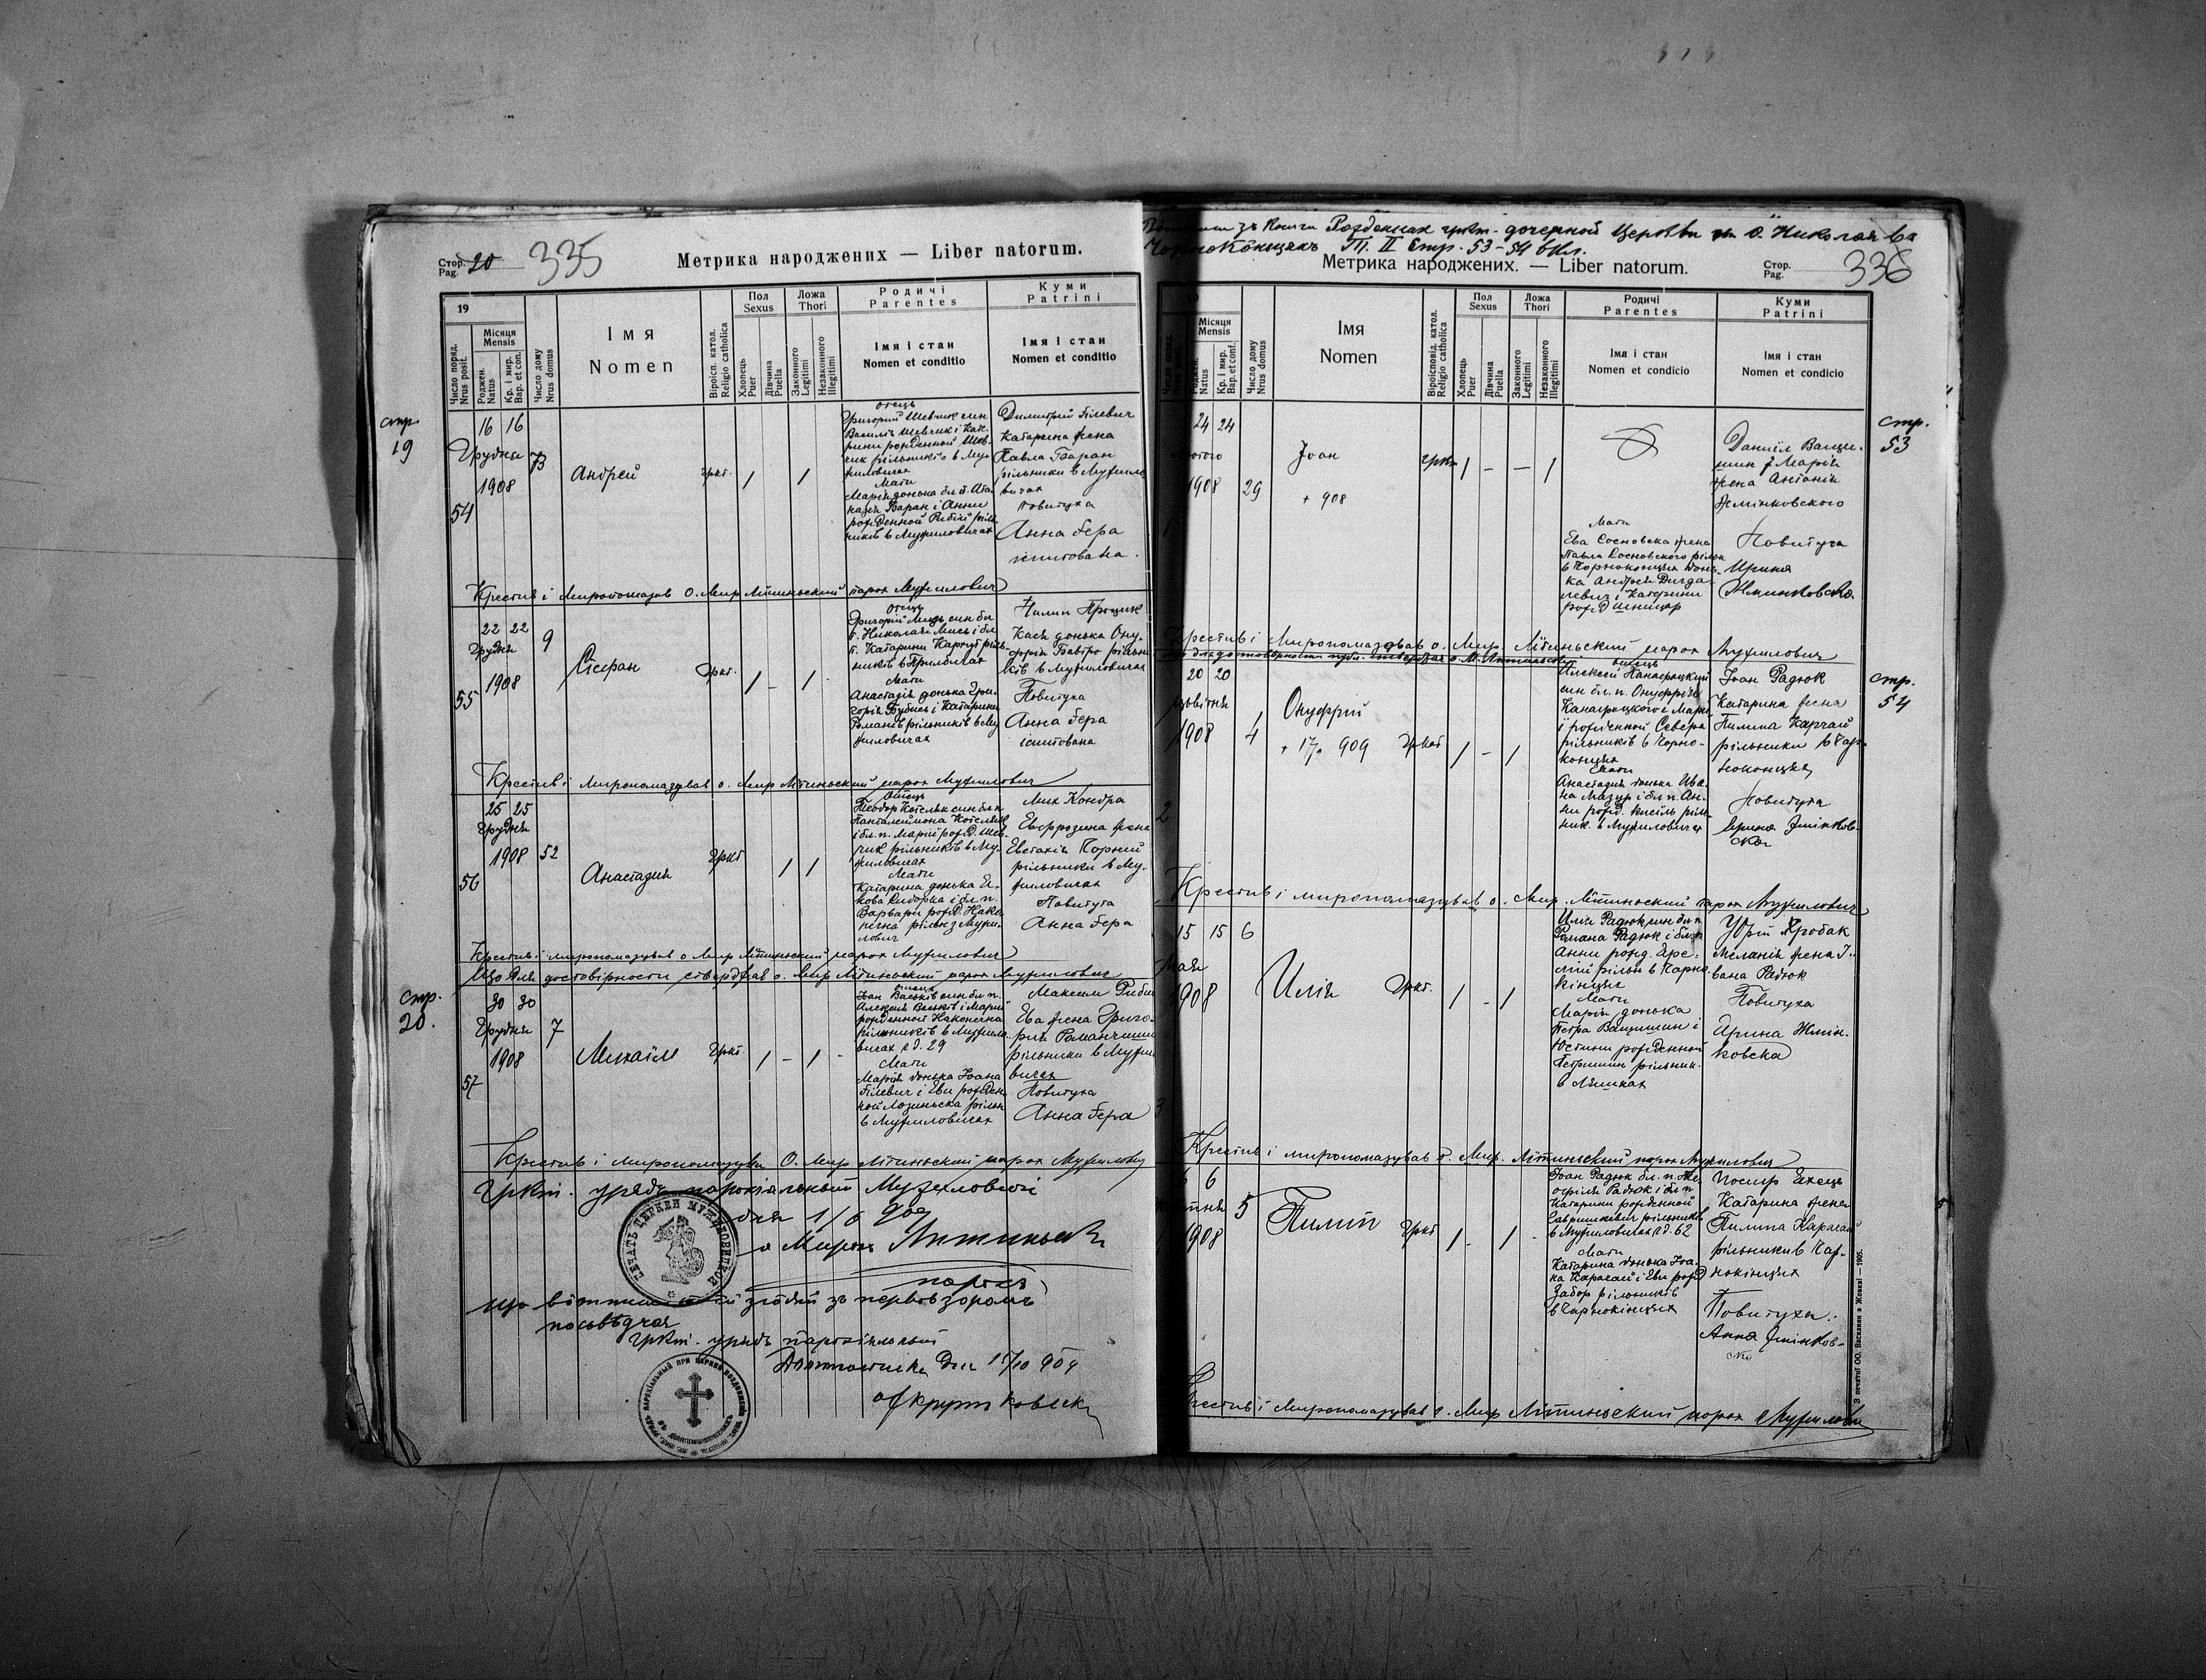 Стор. Pag. 20
335
Метрика народжених — Liber natorum.
19
Число поряд. Nrus posit.
Місяця Mensis
Роджен. Natus
Кр. і мир. Bap. et con.
Число дому Nrus domus
Імя
Nomen
Віроісп. катол. Religio catholica
Пол Sexus
Хлопець Puer
Дівчина Puella
Ложа Thori
Законного Legitimi
Незаконного Illegitimi
Родичі
Parentes
Імя і стан
Nomen et conditio
Куми
Patrini
Імя і стан
Nomen et conditio
стр.
19
54
16 16
Грудня
1908
73
Андрей
гркт.
1
1
отець
Григорий Шевчик син
Василя Шевчик і Кат-
рини рожденной Шев-
чик рільників в Му-
жиловичах
Мати
Марія донька бл. п. Ата-
назія Баран і Анни
рожденной Рибій ріль-
ників в Мужиловичах
Димитрий Гілевич
Катарина жена
Павла Баран
рільники в Мужило
вичах
Повитуха
Анна Гера
іспитована.
Крестив і Миропомазав о. Мир Літиньский парох Мужилович
55
22 22
Грудня
1908
9
Стефан
гркт.
1 -
1
отець
Григорий Мись син бл
п. Николая Мись і бл
п. Катарини Картут ріль-
ників в Прилбичах
Мати
Анастазія донька Гри-
горія Бубись і Катарини
Романів рільників в Му
жиловичах
Пилип Процик
Кася донька Ону-
фрія Бавтро рільни
ків в Мужиловичах
Повитуха
Анна Гера
іспитована
Крестив і миропомазував о. Мир Літиньский парох Мужилович
56
25 25
Грудня
1908
52
Анастазия
гркт
1
1
отець
Теодор Котельк син бл п
Панталеймона Котельк
і бл. п. Марії рожд. Шев-
чик рільників в Му-
жиловичах
Мати
Катарина донька Я-
кова Сидорка і бл. п.
Варвари рожд. Нако
нечна рільн з Мужи-
лович
Мих Кондра
Евфрозина жена
Евстахія Чорний
рільники в Му-
жиловичах
Повитуха
Анна Гера
Крестив і миропомазував о Мир Літиньский парох Мужилович
Що для достовірности ствержав о. Мир Літиньский парох Мужилович
стр.
20.
57
30 30
Грудня
1908
7
Михаіл
гркт.
1 -
1 -
отець
Іоан Васьків син бл п.
Алексея Васьків і Марії
рожденной Наконечна
рільників в Мужило
вичах ч д. 29
Мати
Марія донька Іоана
Гілевич і Еви рожден
ной Лозиньска рільн
в Мужиловичах
Максим Рибій
Ева жена Григо-
рия Романчишин
рільники в Мужи
вичах
Повитуха
Анна Гера
Крестив і миропомазував О. Мир Літиньский парох Мужилович
Гркт. урядъ парохіяльный Мужиловскій
дня 1/6 909
о Мирон Литиньский
парох
що вітпис сей згодний зъ первозоромъ
посвѣдчає
Гркт. урядъ парохіяльный
дня 15/10 909
ПЕЧАТЬ ЦЕРКВИ МУЖИЛОВИЦКОЙ
зъ Книги Рожденных гркт. дочерной Церкви п о. Николая въ
Чорнокôньцяхъ Т. II Стр. 53-54 вкл.
Метрика народжених. — Liber natorum.
Стор. Pag.
336
Місяця Mensis
Роджен. Natus
Кр. і мир. Bap. et conf.
Число дому Nrus domus
Імя
Nomen
Віроісповід. катол. Religio catholica
Пол Sexus
Хлопець Puer
Дівчина Puella
Ложа Thori
Законного Legitimi
Незаконного Illegitimi
Родичі
Parentes
Імя і стан
Nomen et condicio
Куми
Patrini
Імя і стан
Nomen et condicio
стр.
53
24 24
Лютого
1908
29
Іоан
+ 908
гркт
1 - - 1
Мати
Ева Сосновска жена
Павла Сосновского рільн
в Чорноконцях донь-
ка Андрея Дигда-
левич і Катерини
рожд Шніцар
Даниїл Ващи-
шин і Марія
жена Антонія
Жмінковского
Повитуха
Ирина
Жминковска
Крестив і Миропомазував о. Мир. Літиньский парох Мужилович
стр.
54
2
20 20
цьвітня
1908
4
Онуфрій
+ 17/2 909
гркт
1 - 1
отець
Алексей Панагроцкий
син бл. п. Онуфрія
Панагроцкого і Мари
ї рожденной Севера
рільників в Чорно-
концях
Мати
Анастазия донька Ива-
на Мазур і бл п. Ан-
ни рожд. Кисіль ріль-
ник. в Мужиловичах
Іоан Радюк
Катарина жена
Пилипа Карачай
рільники в Чар-
ноконцях
Повитуха
Ирина Жмінков-
ска
Крестив і миропомазував о. Мир. Літиньский парох Мужилович
3
15 15
Мая
1908
6
Илія
гркт.
1 - 1
Илія Радюк син бл п
Романа Радюк і бл п
Анни рожд. Яре-
мій рільн в Чорно
кінцях
Мати
Марія донька
Петра Ващишин і
Юстини рожденной
Петришин рільник.
в Ліпиках
Юрій Хробак
Меланія жена І-
вана Радюк
Повитуха
Ирина Жмін-
ковска
Крестив і миропомазував о. Мир. Літиньский парох Мужилович
6
1908
5
Пилип
гркт
1 -
1 -
Іоан Радюк бл. п. Те
офіля Радюк і бл п
Катарини рожденной
Гавришкевич рільників
в Мужиловичах ч д. 62
Мати
Катарина донька Іоа-
на Карачай і Еви рожд
Забор рільників
в Чарнокінцях
Катарина жена
Пилипа Карачай
рільники в Чар-
нокінцях
Повитуха.
Анна Жмінков-
ска
Крестив і Миропомазував о. Мир Літиньский парох Мужилови
З печатні ОО. Василиян в Жовкві — 1905.